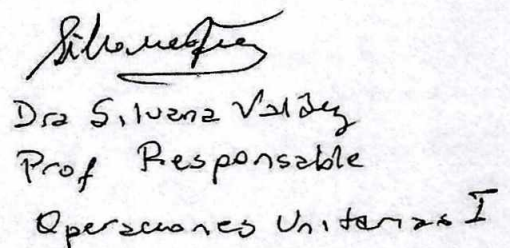 Dra Silvana Valdez
Prof Responsable
Operaciones Unitarias I